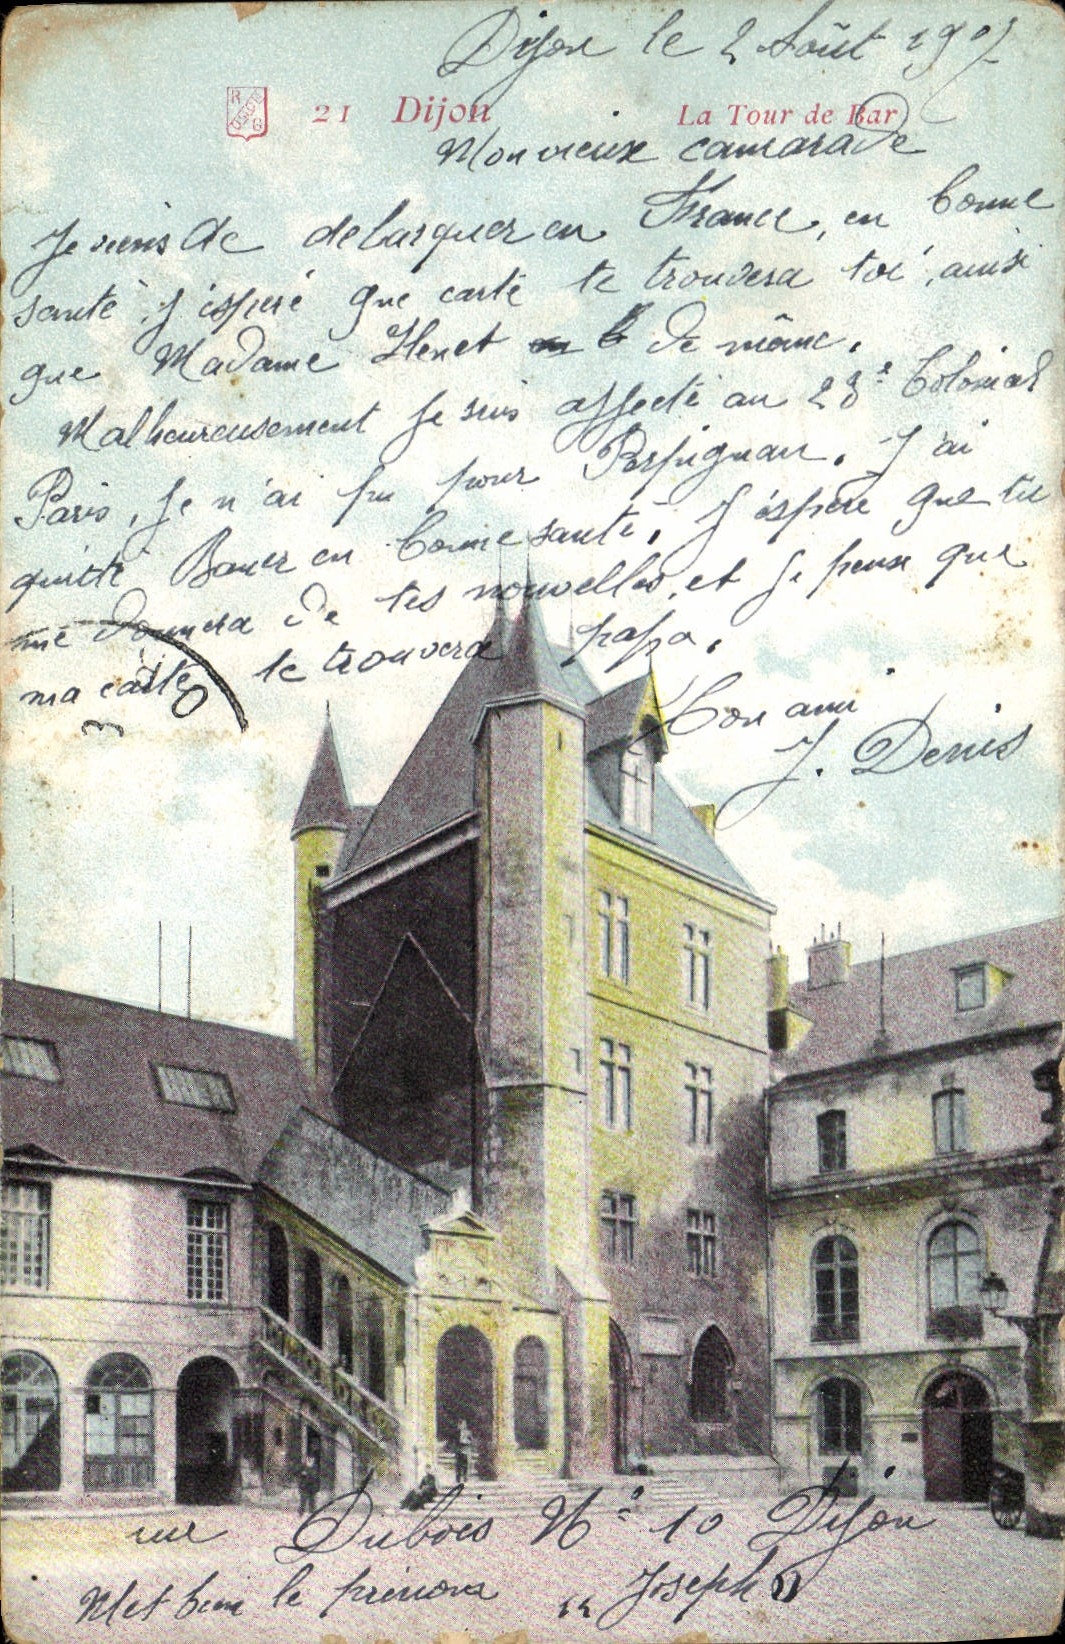 Dijon le 2 Août 1907
21 Dijon La Tour de Bar
Mon vieux camarade
Je viens de debarquer en France, en bonne
santé, j'éspère que carte te trouvera toi, ainsi
que Madame de même.
Malheureusement je suis affecté au 23e Colonial
Paris, je n'ai pu pour Perpignan. J'ai
quitté en bonne santé. J'éspère que tu
me donnera de tes nouvelles, et je pense que
ma carte te trouvera papa.
ton ami
J. Denis
rue Dubois No 10 Dijon
Met bien le prénom " Joseph "